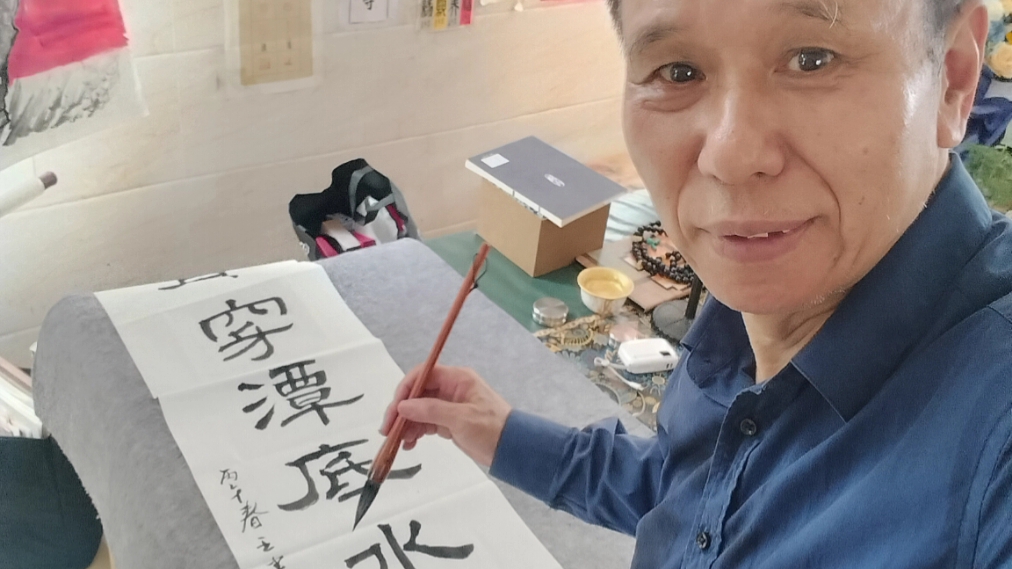 穿潭底水
丙午春王